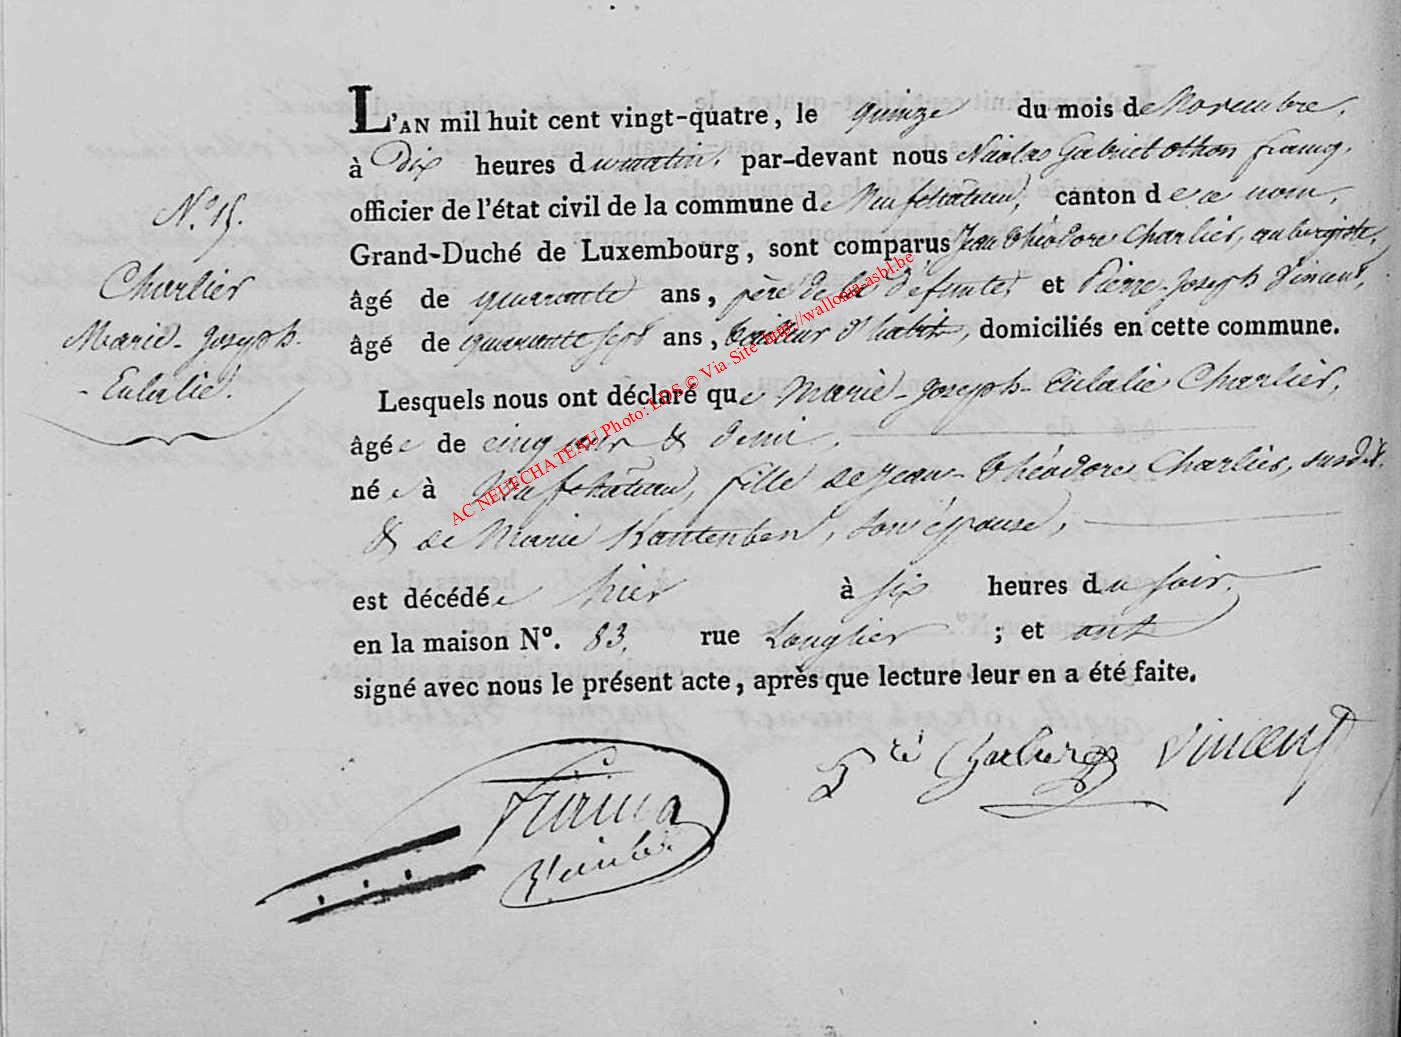 N.° 15.
Charlier
Marie-Joseph-
-Eulalie.
L'AN mil huit cent vingt-quatre, le quinze du mois de Novembre,
à Dix heures du matin, par-devant nous Nicolas Gabriel Othon
officier de l'état civil de la commune de Neufchâteau, canton de ce nom,
Grand-Duché de Luxembourg, sont comparus Jean Théodore Charlier, aubergiste,
âgé de quarante ans, père de la défunte, et Pierre-Joseph Vincent,
âgé de quarante sept ans, tailleur d'habits, domiciliés en cette commune.
Lesquels nous ont déclaré que Marie-Joseph-Eulalie Charlier,
âgée de cinq & demi.
née à Neufchâteau, fille de Jean-Théodore Charlier, susdit,
& de Marie son épouse,
est décédée hier à six heures du soir.
en la maison N°. 83, rue Longlier ; et ont
signé avec nous le présent acte, après que lecture leur en a été faite.
Charlier Vincent
AC NEUFCHATEAU Photo: LDS © Via Site http://wallonia-asbl.be